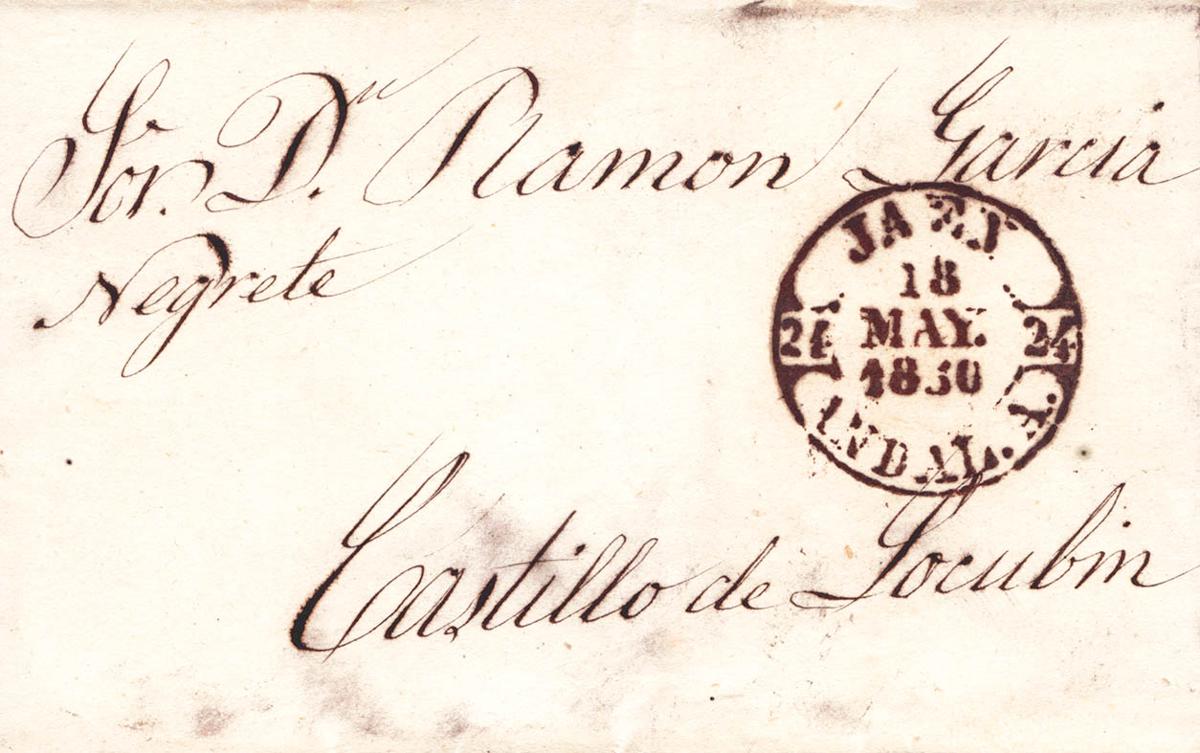 Sor. Dn. Ramon Garcia
Negrete
JAEN
18
24 MAY. 24
1850
ANDAL. A.
Castillo de Locubin